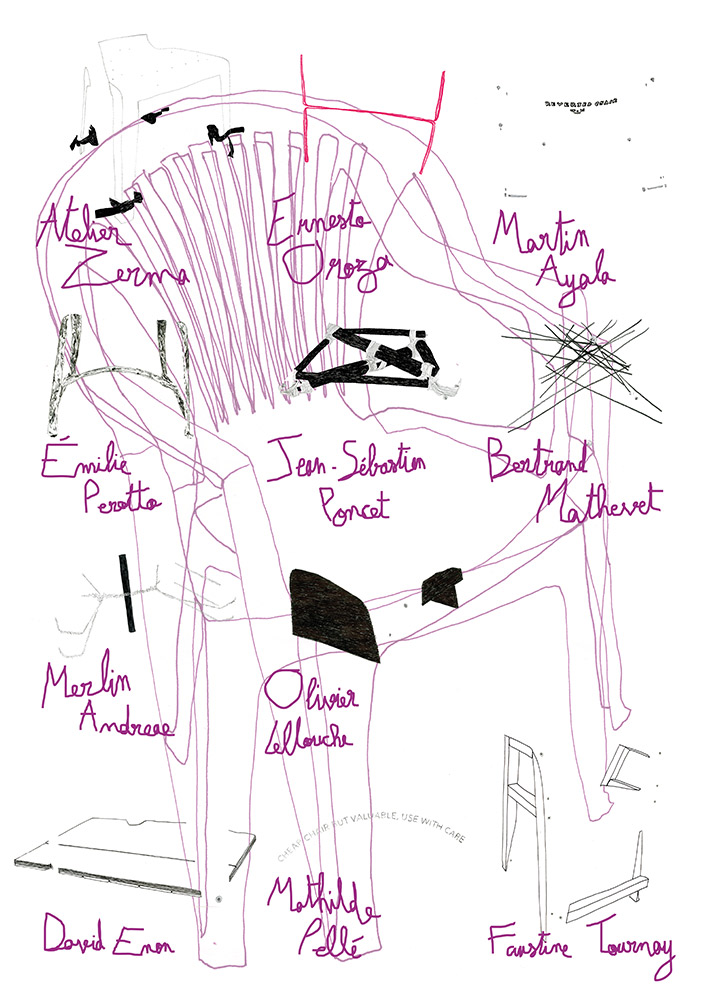 Atelier
Zerma
Ernesto
Oroza
Martin
Ayala
Émilie
Perotto
Jean-Sébastien
Poncet
Bertrand
Mathevet
Merlin
Andreae
Olivier
Lellouche
CHEAP CHAIR BUT VALUABLE, USE WITH CARE
David Enon
Mathilde
Pellé
Faustine Tournay